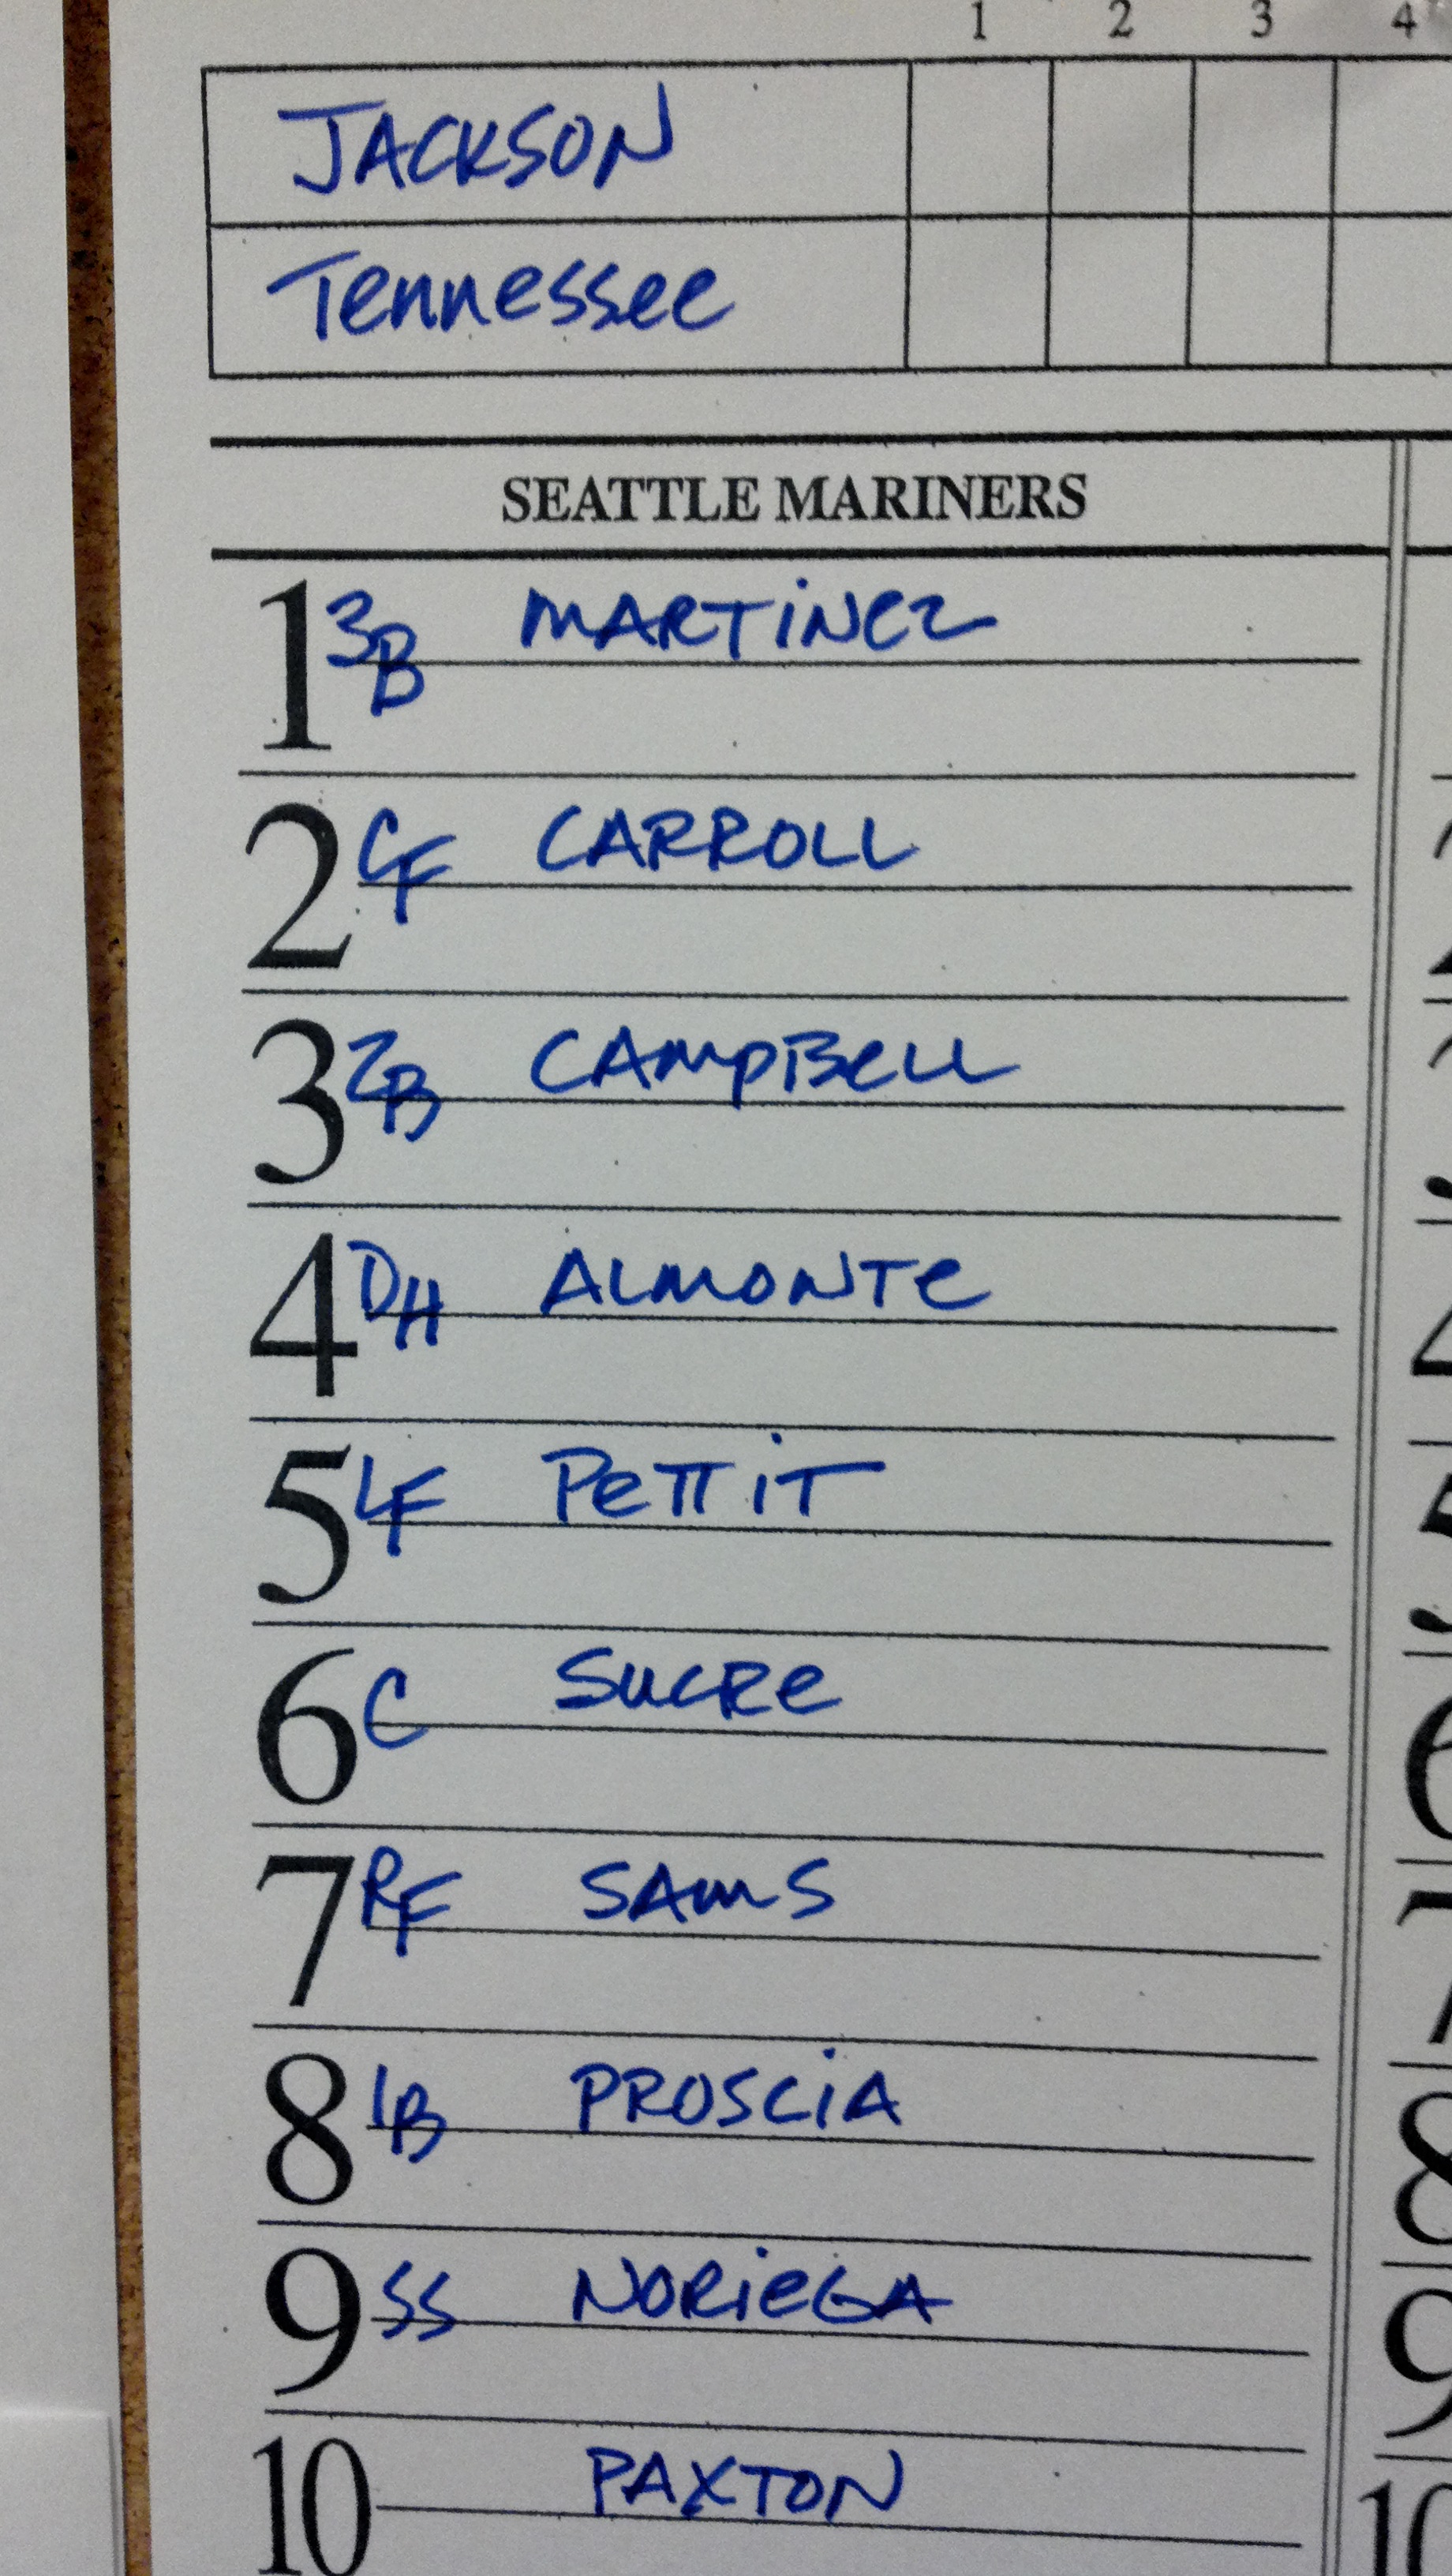 1 2 3 4
JACKSON
Tennessee
SEATTLE MARINERS
1 3B MARTINEZ
2 CF CARROLL
3 2B CAMPBELL
4 DH ALMONTE
5 LF PETTIT
6 C SUCRE
7 RF SAMS
8 1B PROSCIA
9 SS NORIEGA
10 PAXTON